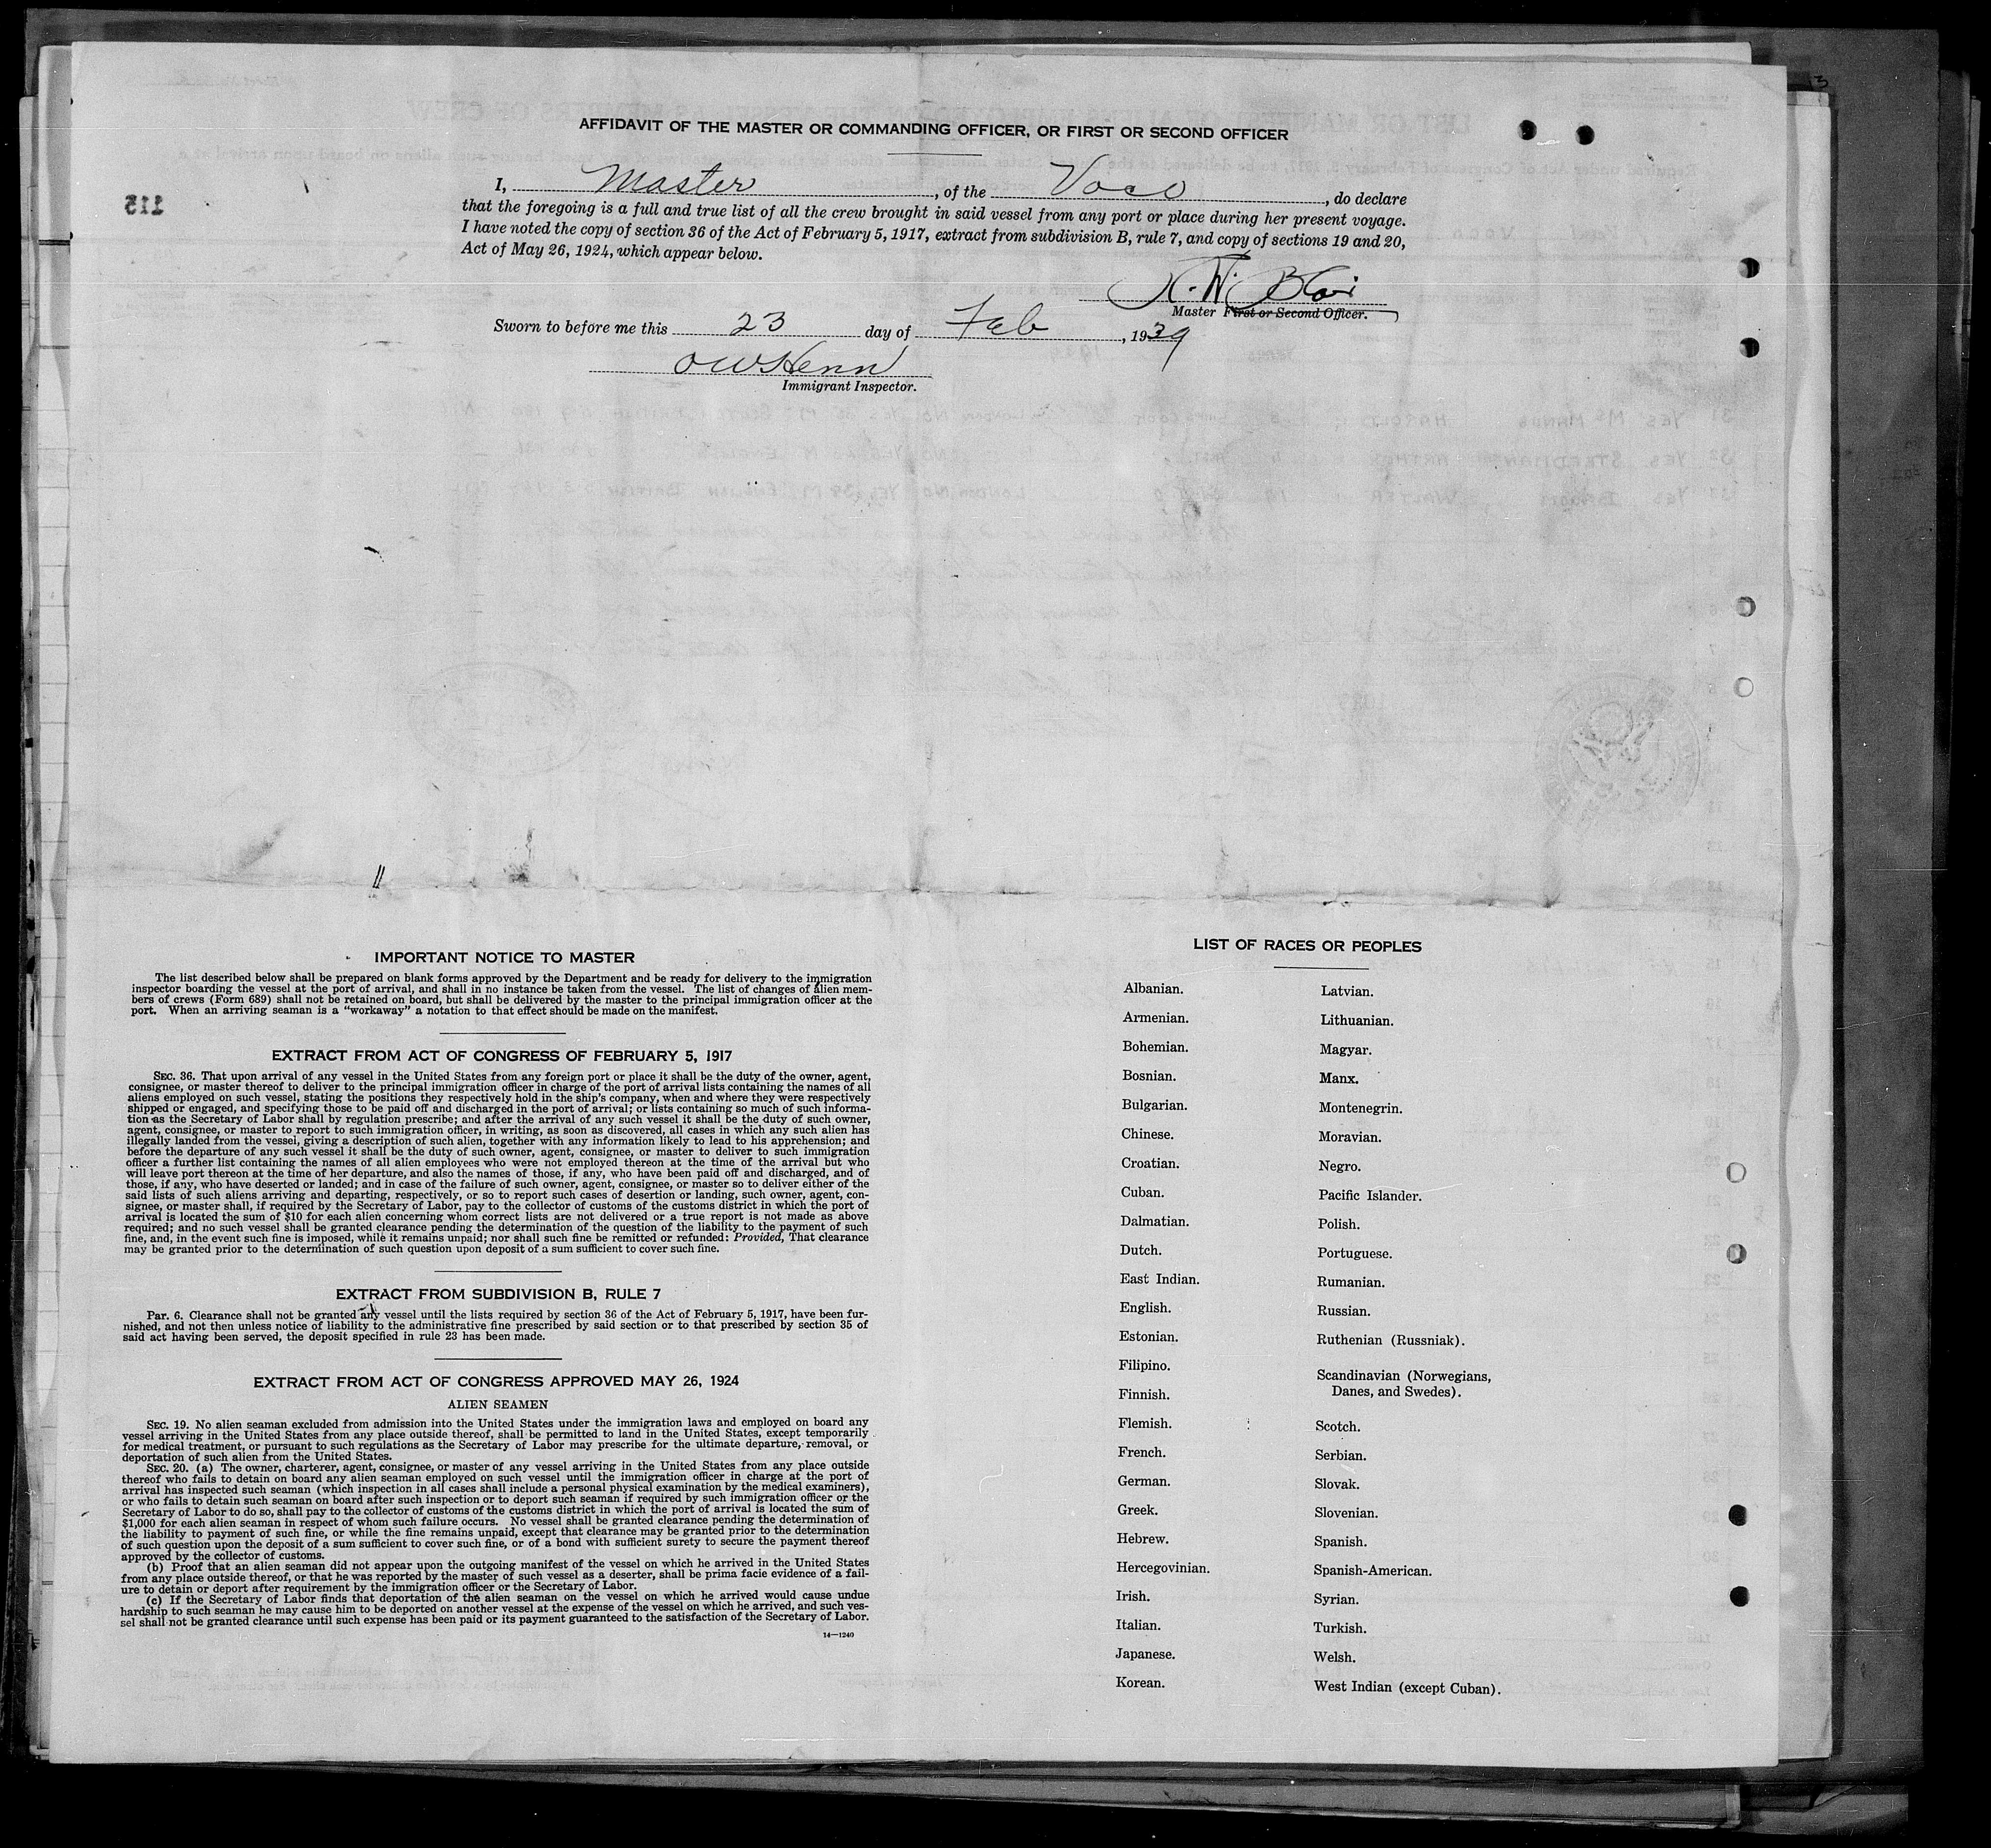 AFFIDAVIT OF THE MASTER OR COMMANDING OFFICER, OR FIRST OR SECOND OFFICER
I, Master, of the Voco, do declare
that the foregoing is a full and true list of all the crew brought in said vessel from any port or place during her present voyage.
I have noted the copy of section 36 of the Act of February 5, 1917, extract from subdivision B, rule 7, and copy of sections 19 and 20,
Act of May 26, 1924, which appear below.
115
Master First or Second Officer.
Sworn to before me this 23 day of Feb, 1939
OWHenn
Immigrant Inspector.
IMPORTANT NOTICE TO MASTER
The list described below shall be prepared on blank forms approved by the Department and be ready for delivery to the immigration
inspector boarding the vessel at the port of arrival, and shall in no instance be taken from the vessel. The list of changes of alien mem-
bers of crews (Form 689) shall not be retained on board, but shall be delivered by the master to the principal immigration officer at the
port. When an arriving seaman is a "workaway" a notation to that effect should be made on the manifest.
EXTRACT FROM ACT OF CONGRESS OF FEBRUARY 5, 1917
SEC. 36. That upon arrival of any vessel in the United States from any foreign port or place it shall be the duty of the owner, agent,
consignee, or master thereof to deliver to the principal immigration officer in charge of the port of arrival lists containing the names of all
aliens employed on such vessel, stating the positions they respectively hold in the ship's company, when and where they were respectively
shipped or engaged, and specifying those to be paid off and discharged in the port of arrival; or lists containing so much of such informa-
tion as the Secretary of Labor shall by regulation prescribe; and after the arrival of any such vessel it shall be the duty of such owner,
agent, consignee, or master to report to such immigration officer, in writing, as soon as discovered, all cases in which any such alien has
illegally landed from the vessel, giving a description of such alien, together with any information likely to lead to his apprehension; and
before the departure of any such vessel it shall be the duty of such owner, agent, consignee, or master to deliver to such immigration
officer a further list containing the names of all alien employees who were not employed thereon at the time of the arrival but who
will leave port thereon at the time of her departure, and also the names of those, if any, who have been paid off and discharged, and of
those, if any, who have deserted or landed; and in case of the failure of such owner, agent, consignee, or master so to deliver either of the
said lists of such aliens arriving and departing, respectively, or so to report such cases of desertion or landing, such owner, agent, con-
signee, or master shall, if required by the Secretary of Labor, pay to the collector of customs of the customs district in which the port of
arrival is located the sum of $10 for each alien concerning whom correct lists are not delivered or a true report is not made as above
required; and no such vessel shall be granted clearance pending the determination of the question of the liability to the payment of such
fine, and, in the event such fine is imposed, while it remains unpaid; nor shall such fine be remitted or refunded: Provided, That clearance
may be granted prior to the determination of such question upon deposit of a sum sufficient to cover such fine.
EXTRACT FROM SUBDIVISION B, RULE 7
PAR. 6. Clearance shall not be granted any vessel until the lists required by section 36 of the Act of February 5, 1917, have been fur-
nished, and not then unless notice of liability to the administrative fine prescribed by said section or to that prescribed by section 35 of
said act having been served, the deposit specified in rule 23 has been made.
EXTRACT FROM ACT OF CONGRESS APPROVED MAY 26, 1924
ALIEN SEAMEN
SEC. 19. No alien seaman excluded from admission into the United States under the immigration laws and employed on board any
vessel arriving in the United States from any place outside thereof, shall be permitted to land in the United States, except temporarily
for medical treatment, or pursuant to such regulations as the Secretary of Labor may prescribe for the ultimate departure, removal, or
deportation of such alien from the United States.
SEC. 20. (a) The owner, charterer, agent, consignee, or master of any vessel arriving in the United States from any place outside
thereof who fails to detain on board any alien seaman employed on such vessel until the immigration officer in charge at the port of
arrival has inspected such seaman (which inspection in all cases shall include a personal physical examination by the medical examiners),
or who fails to detain such seaman on board after such inspection or to deport such seaman if required by such immigration officer or the
Secretary of Labor to do so, shall pay to the collector of customs of the customs district in which the port of arrival is located the sum of
$1,000 for each alien seaman in respect of whom such failure occurs. No vessel shall be granted clearance pending the determination of
the liability to payment of such fine, or while the fine remains unpaid, except that clearance may be granted prior to the determination
of such question upon the deposit of a sum sufficient to cover such fine, or of a bond with sufficient surety to secure the payment thereof
approved by the collector of customs.
(b) Proof that an alien seaman did not appear upon the outgoing manifest of the vessel on which he arrived in the United States
from any place outside thereof, or that he was reported by the master of such vessel as a deserter, shall be prima facie evidence of a fail-
ure to detain or deport after requirement by the immigration officer or the Secretary of Labor.
(c) If the Secretary of Labor finds that deportation of the alien seaman on the vessel on which he arrived would cause undue
hardship to such seaman he may cause him to be deported on another vessel at the expense of the vessel on which he arrived, and such ves-
sel shall not be granted clearance until such expense has been paid or its payment guaranteed to the satisfaction of the Secretary of Labor.
14—1240
LIST OF RACES OR PEOPLES
Albanian.
Armenian.
Bohemian.
Bosnian.
Bulgarian.
Chinese.
Croatian.
Cuban.
Dalmatian.
Dutch.
East Indian.
English.
Estonian.
Filipino.
Finnish.
Flemish.
French.
German.
Greek.
Hebrew.
Hercegovinian.
Irish.
Italian.
Japanese.
Korean.
Latvian.
Lithuanian.
Magyar.
Manx.
Montenegrin.
Moravian.
Negro.
Pacific Islander.
Polish.
Portuguese.
Rumanian.
Russian.
Ruthenian (Russniak).
Scandinavian (Norwegians,
Danes, and Swedes).
Scotch.
Serbian.
Slovak.
Slovenian.
Spanish.
Spanish-American.
Syrian.
Turkish.
Welsh.
West Indian (except Cuban).